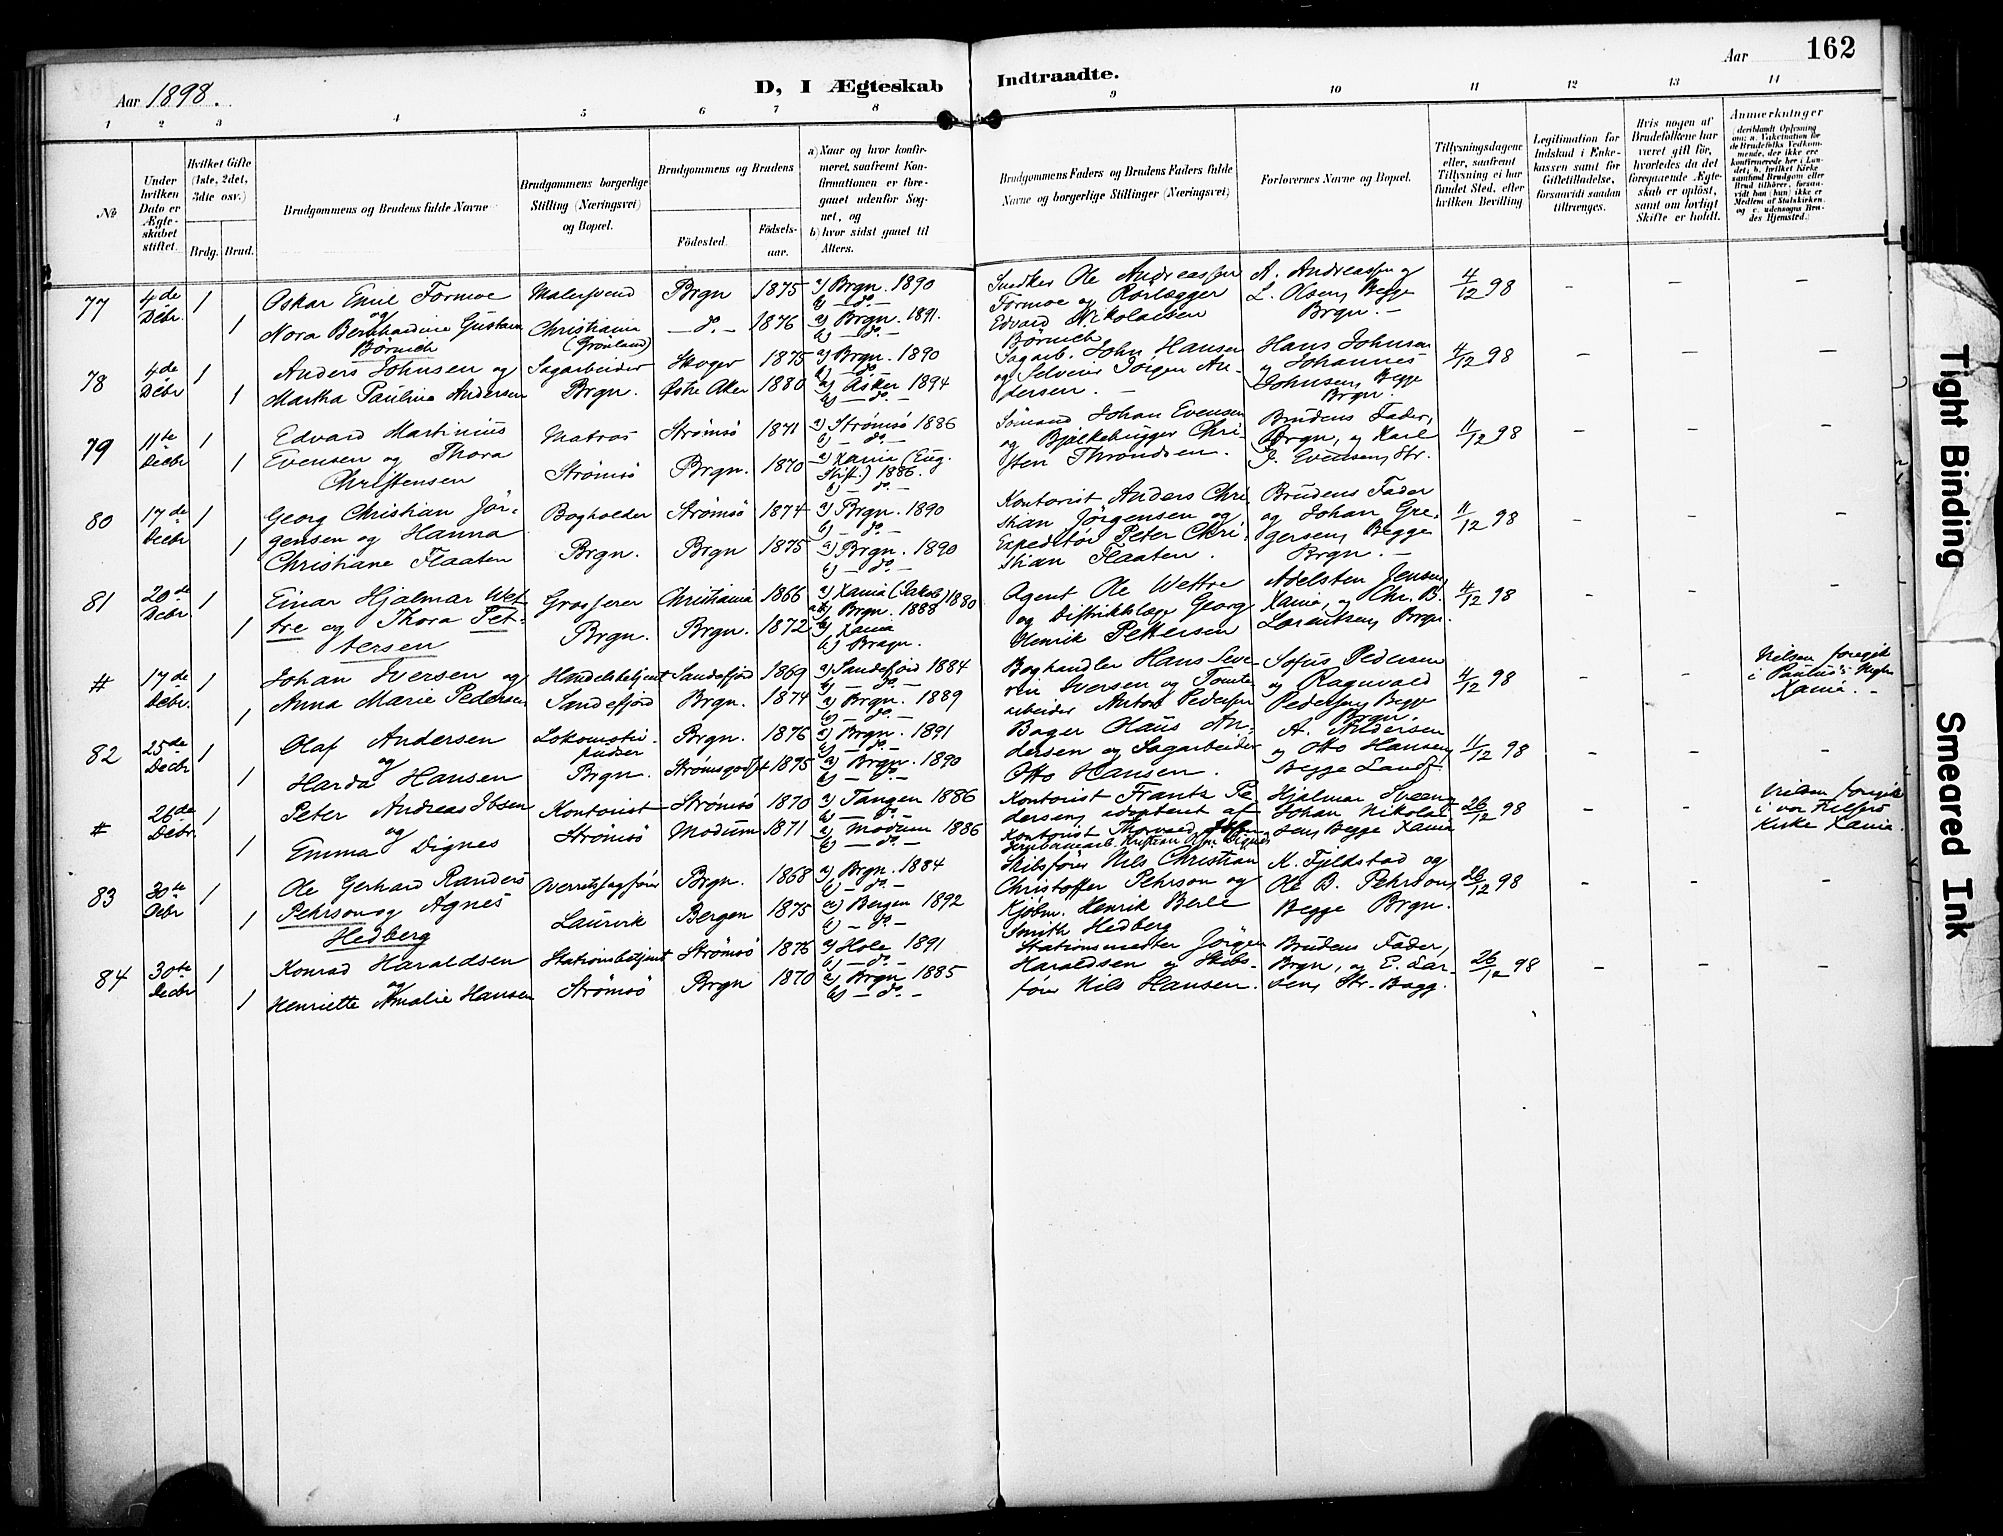 162
Aar 1898.
D, I Ægteskab Indtraadte.
Aar
1 2 3 4 5 6 7 8 9 10 11 12 13 14
No
Under hvilken Dato er Ægteskabet stiftet.
Hvilket Gifte (1ste, 2det, 3die osv.)
Brdg. Brud.
Brudgommens og Brudens fulde Navne
Brudgommens borgerlige Stilling (Næringsvei) og Bopæl.
Brudgommens og Brudens
Födested.
Födselsaar.
a) Naar og hvor konfirmeret, saafremt Konfirmationen er foregaaet udenfor Sognet, og
b) hvor sidst gaaet til Alters.
Brudgommens Faders og Brudens Faders fulde Navne og borgerlige Stillinger (Næringsvei)
Forlovernes Navne og Bopæl.
Tillysningsdagene eller, saafremt Tillysning ei har fundet Sted, efter hvilken Bevilling
Legitimation for Indskud i Enkekassen samt for Giftetilladelse, forsaavidt saadan tiltrænges.
Hvis nogen af Brudefolkene har været gift för, hvorledes da det foregaaende Ægteskab er oplöst, samt om lovligt Skifte er holdt.
Anmerkninger
77 4de Debr. 1 Oskar Emil Formoe Malersvend Brgn 1875 a) Brgn. 1890 b) — do. —
og 1 Nora Bernhardine Gustava Börnich Christiania (Grönland) — do. — 1876 a) Brgn. 1891. b) — do. —
Snedker Ole Andreassen Formoe og Rörlægger Edvard Nikolaisen Börnich
A. Andreassen og L. Olsen, Begge Brgn. — 4/12 98 - - -
78 4de Debr 1 Anders Johnsen og Sagarbeider Skoger 1875 a) Brgn. 1890 b) — do —
1 Martha Pauline Andersen Brgn. Østre Aker 1880 a) Asker 1894 b) — do. —
Sagarb. John Hansen og Selveier Jörgen Andersen. —
Hans Johnsen og Johannes Johnsen, Begge Brgn. 4/12 98 - - -
79 11te Decbr 1 Edvard Martinius Matros Strömsö 1871 a) Strömsö 1886 b) — do. —
1 Evensen og Thora Christensen Strömsö Brgn. 1870 a) Xania (Eug. Stift.) 1886. b) — do. —
Sömand Johan Evensen og Bjelkebugger Christen Throndsen.
Brudens Fader, Brgn, og Karl J. Evensen, Str. 11/12 98 - - -
80 17de Decbr 1 Georg Christian Jörgensen og Hanna Bogholder Strömsö 1874 a) Brgn. 1890 b) — do. —
1 Christiane Flaaten Brgn. Brgn 1875 a) Brgn. 1890 b) — do. —
Kontorist Anders Christian Jörgensen og Expeditör Peter Christian Flaaten.
Brudens Fader og Johan Gregersen, Begge Brgn. — 11/12 98 - - -
81 20de Debr. 1 Einar Hjalmar Wettre og Thora Pettersen Grosserer Christiania 1866 a) Xania (Jakob) 1880
1 Brgn. Brgn. 1872 a) Brgn. 1888 b) Xania b) Bragn.
Agent Ole Wettre og Distriktslæge Georg Henrik Pettersen
Adelsten Jensen, Xania, og Chr. B. Lorentsen, Brgn. 4/12 98 - - -
# 17de Debr. 1 Johan Iversen og Handelsbetjent Sandefjord 1869 a) Sandefjord 1884 b) — do. —
1 Anna Marie Pedersen Sandefjord Brgn. 1874 a) Brgn. 1889 b) — do. —
Boghandler Hans Severin Iversen og Tomtearbeider Anton Pedersen
Sofus Pedersen og Ragnvald Pedersen, Begge Brgn. 4/12 98 - -
Vielsen foregik i Paulus's Kirke Xania. —
82 25de Decbr 1 Olaf Andersen Lokomotivpudser Brgn. 1876 a) Brgn. 1891 b) — do. —
og 1 Harda Hansen Brgn. Strömsgodset 1875 a) Brgn. 1890 b) — do. —
Bager Olaus Andersen og Sagarbeider Otto Hansen.
A. Andersen og Otto Hansen, Begge Landf. 11/12 98 - - -
# 26de Debr. 1 Peter Andreas Ibsen Kontorist Strömsö 1870 a) Tangen 1886 b) — do. —
og 1 Emma Dignes Strömsö Modum 1871 a) Modum 1886 b) — do. —
Kontorist Frantz Pedersen, adopteret af Kontorist Thorvald Ibsen
Hjalmar Sveen, Johan Nikolaisen, Begge Xania 26/12 98 - -
Vielsen foregik i vor Frelsers Kirke Xania.
83 30te Debr 1 Ole Gerhard Randers Overretssagförer Brgn. 1868 a) Brgn. 1884 b) — do. —
1 Pehrson og Agnes Hedberg Laurvik Bergen 1875 a) Bergen 1892 b) — do. —
Skibsförer Nils Christian Christoffer Pehrson og Kjöbm. Henrik Berle Smith Hedberg
K. Fjeldstad og Ole B. Pehrson, Begge Brgn. 26/12 98 - - -
84 30te Decbr 1 Konrad Haraldsen Stationsbetjent Strömsö 1876 a) Hole 1891 b) — do. —
og 1 Henriette Amalie Hansen Strömsö Brgn 1870 a) Brgn 1885 b) — do. —
Stationsmester Jörgen Haraldsen og Skibsförer Nils Hansen.
Brudens Fader, Brgn, og E. Larsen, Str. Bagg. 26/12 98 - - -
Tight Binding
Smeared Ink